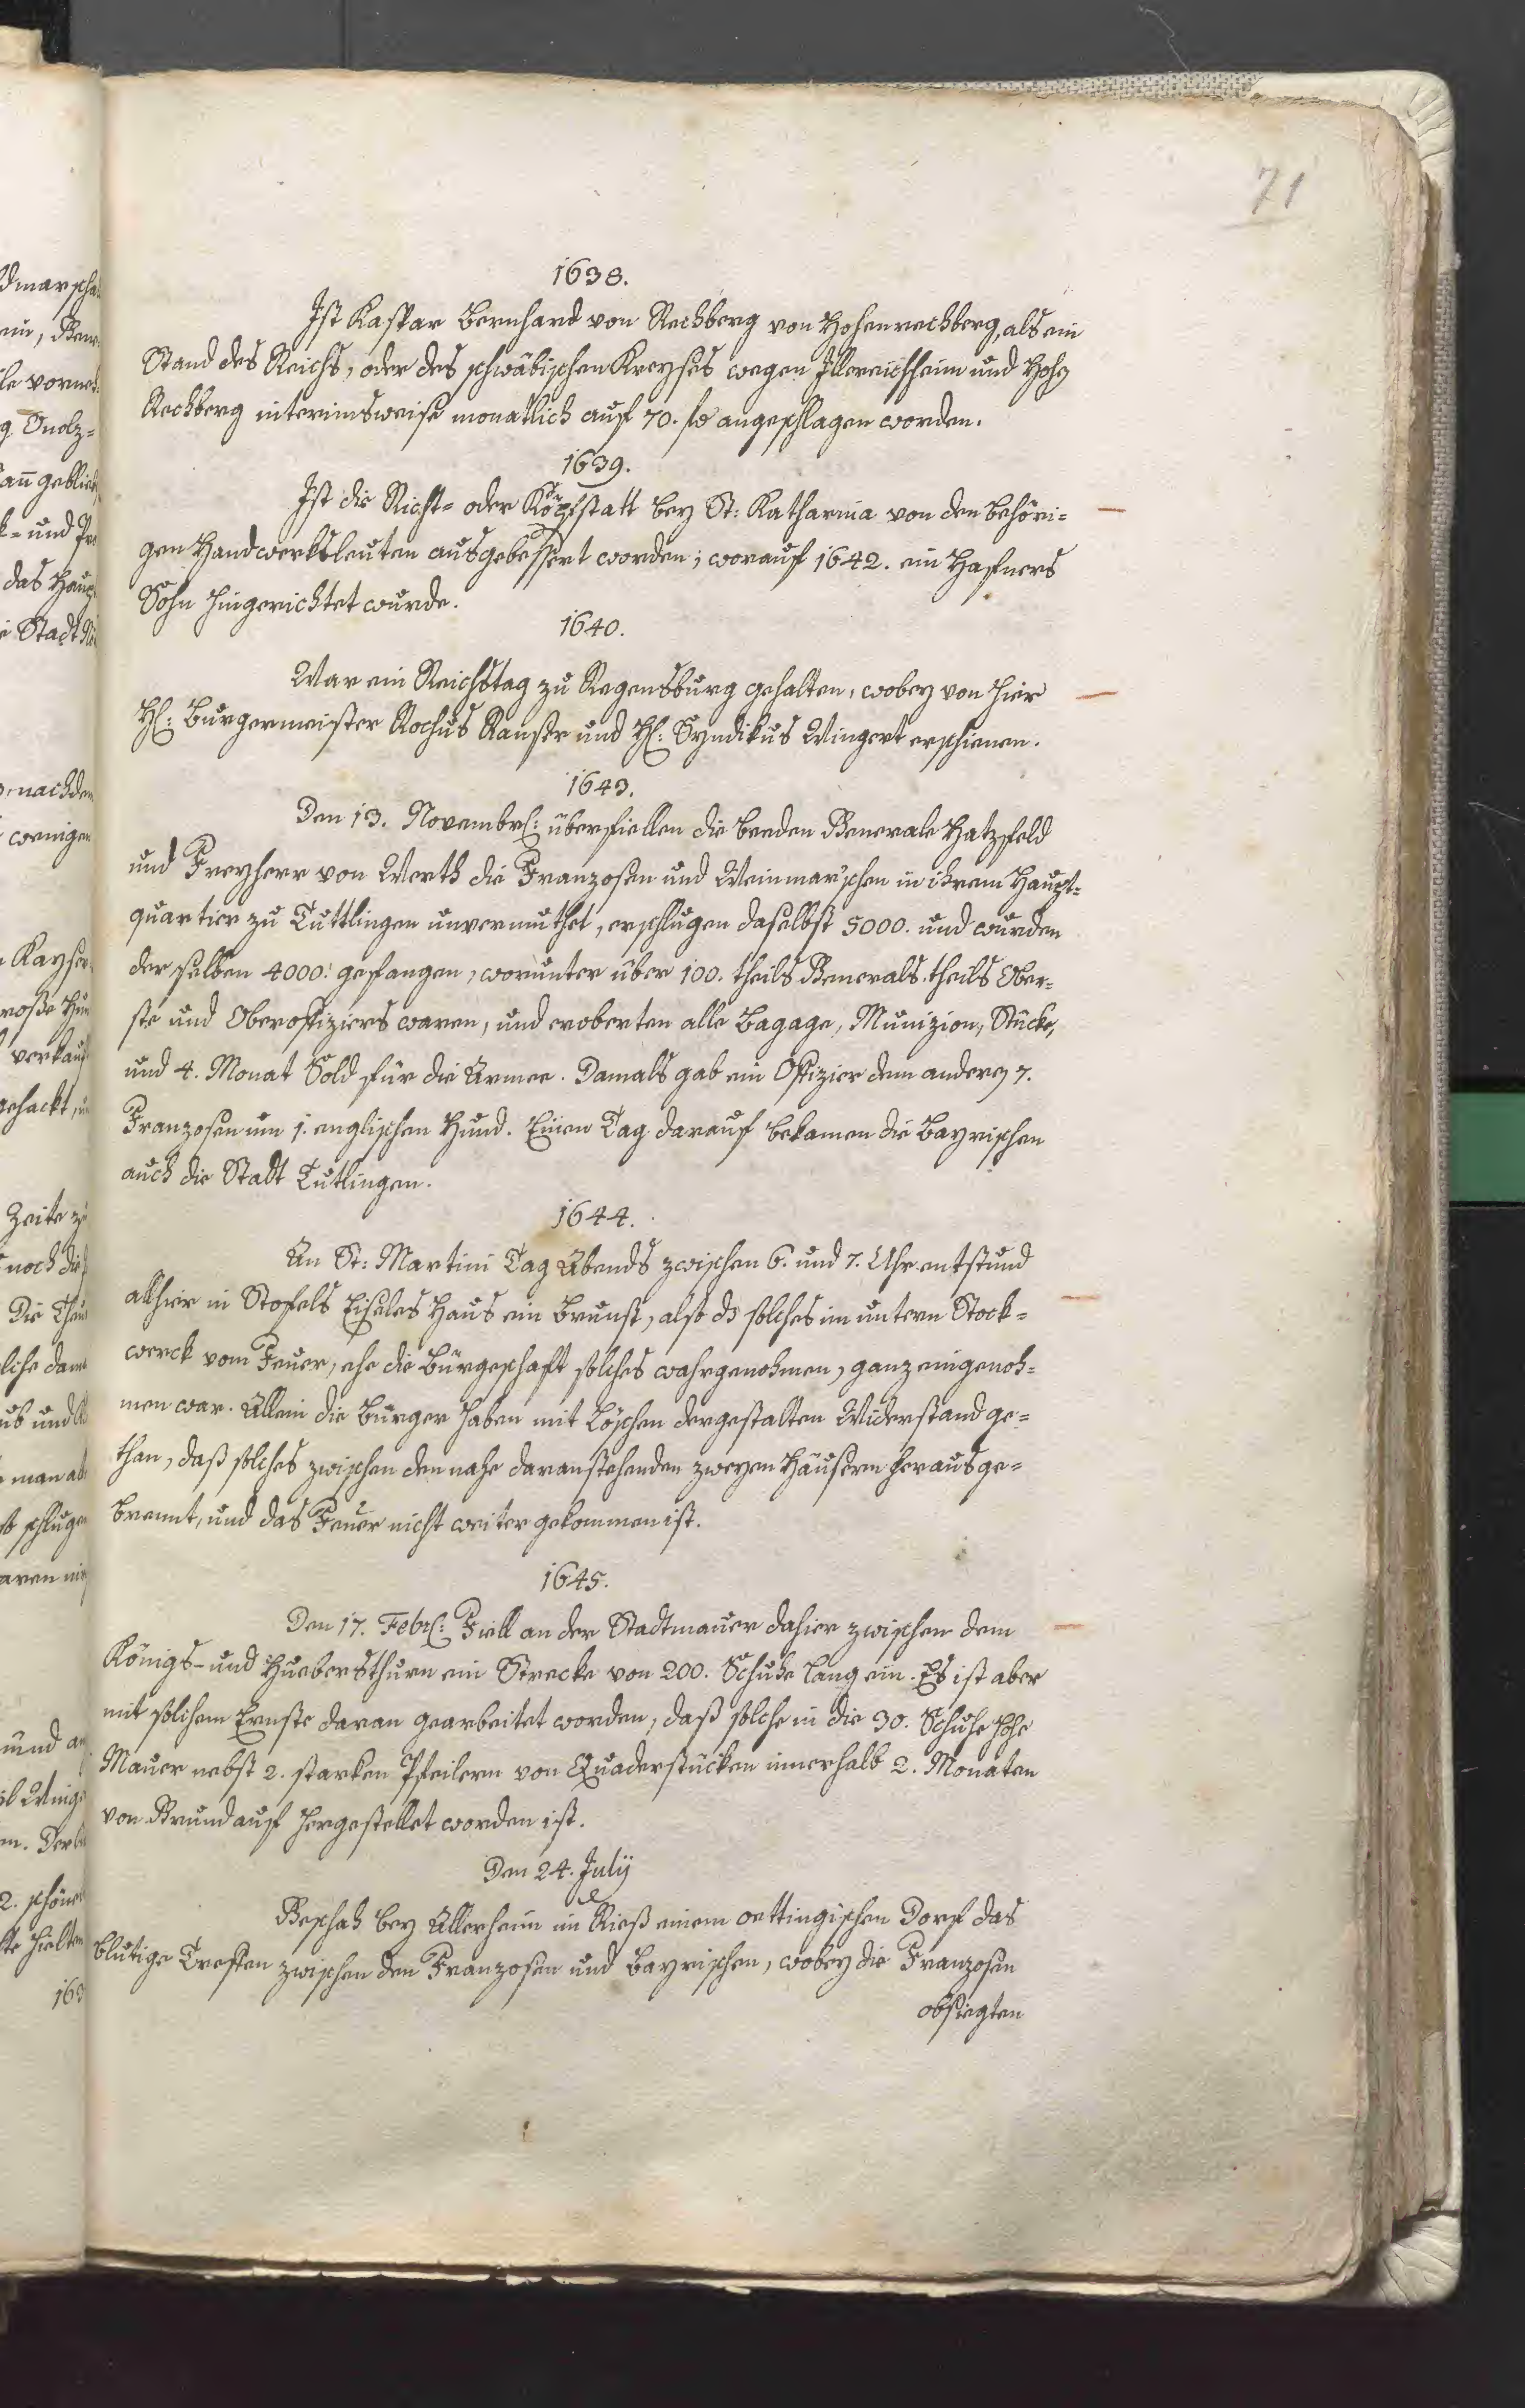 71
1638.
Ist Kaspar Bernhard von Rechberg von Hohenrechberg, als ein
Stand des Reichs, oder des schwäbischen Kreyses wegen Illereichheim und Hohen
Rechberg interimsweise monatlich auf 70. fl angeschlagen worden.
1639.
Ist die Richt= oder Köpfstatt bey St: Katharina von den behöri=
gen Handwerksleuten ausgebessert worden; worauf 1642. ein Hafners
Sohn hingerichtet wurde.
1640.
War ein Reichstag zu Regensburg gehalten, wobey von hier
H: Burgermeister Rochus und H: Syndikus Wingert erschienen.
1643.
Den 13. Novembr: überfiellen die beeden Generale Hatzfeld
und Freyherr von Werth die Franzosen und Weinmar'schen in ihrem Haupt=
quartier zu Tuttlingen unvermuthet, erschlugen daselbst 5000. und wurden
der selben 4000. gefangen, worunter über 100. theils Generals theils Ober=
ste und Oberoffiziers waren, und eroberten alle Bagage, Munizion, Stücke,
und 4. Monat Sold für die Armee. Damals gab ein Offizier dem andern 7.
Franzosen um 1. englischen Hund. Einen Tag darauf bekamen die Bayrischen
auch die Stadt Tutlingen.
1644.
An St: Martini Tag Abends zwischen 6. und 7. Uhr entstund
allhier in Stofels Eiseles Haus ein Brunst, also ds solches im untern Stock=
werck vom Feuer, ehe die Bürgeschaft solches wahrgenohmen, ganz eingenoh=
men war. Allein die Bürger haben mit Löschen dergestalten Widerstand ge=
than, daß solches zwischen den nahe daranstehenden zweyen Häusern herausge=
brennt, und das Feuer nicht weiter gekommen ist.
1645.
Den 17. Febr: Fiell an der Stadtmauer dahier zwischen dem
Königs- und Huebersthurn ein Strecke von 200. Schuhe lang ein. Es ist aber
mit solchem Ernste daran gearbeitet worden, daß solche in die 30. Schuhe hohe
Mauer nebst 2. starken Pfeilern von Quaderstücken innerhalb 2. Monaten
von Grund auf hergestellet worden ist.
Den 24. July
Geschah bey Allerheim im Rieß einem oettingischen Dorf das
blutige Treffen zwischen den Franzosen und Bayrischen, wobey die Franzosen
obsiegten